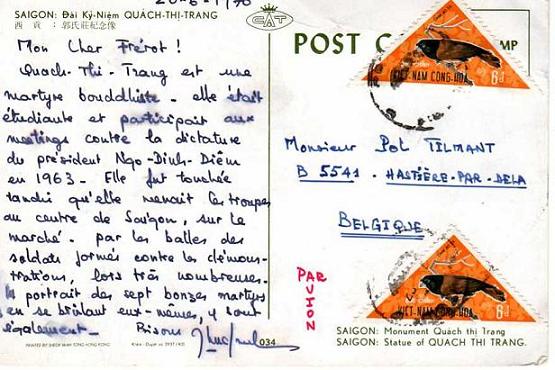 20-6-1970
SAIGON: Đài Kỷ-Niệm QUÁCH-THỊ-TRANG
CAT
POST
Mon Cher Frérot !
Quach-Thi-Trang est une
martyre bouddhiste - elle était
étudiante et participait aux
meetings contre la dictature
du président Ngo-Dinh-Diêm
en 1963. Elle fut touchée
tandis qu'elle menait les troupes
au centre de Saigon, sur le
marché. par les balles des
soldats formés contre les démons-
trations, lors très nombreuses.
portrait des sept bonzes martyrs
en se brûlant eux-mêmes, y sont
également
Bisous
VIET-NAM CONG-HOA
6đ
Monsieur Pol TILMANT
B 5541 - HASTIÈRE-PAR-DELA
BELGIQUE
PAR
AVION
VIET-NAM CONG-HOA
6đ
034
SAIGON: Monument Quách thị Trang
SAIGON: Statue of QUACH THI TRANG.